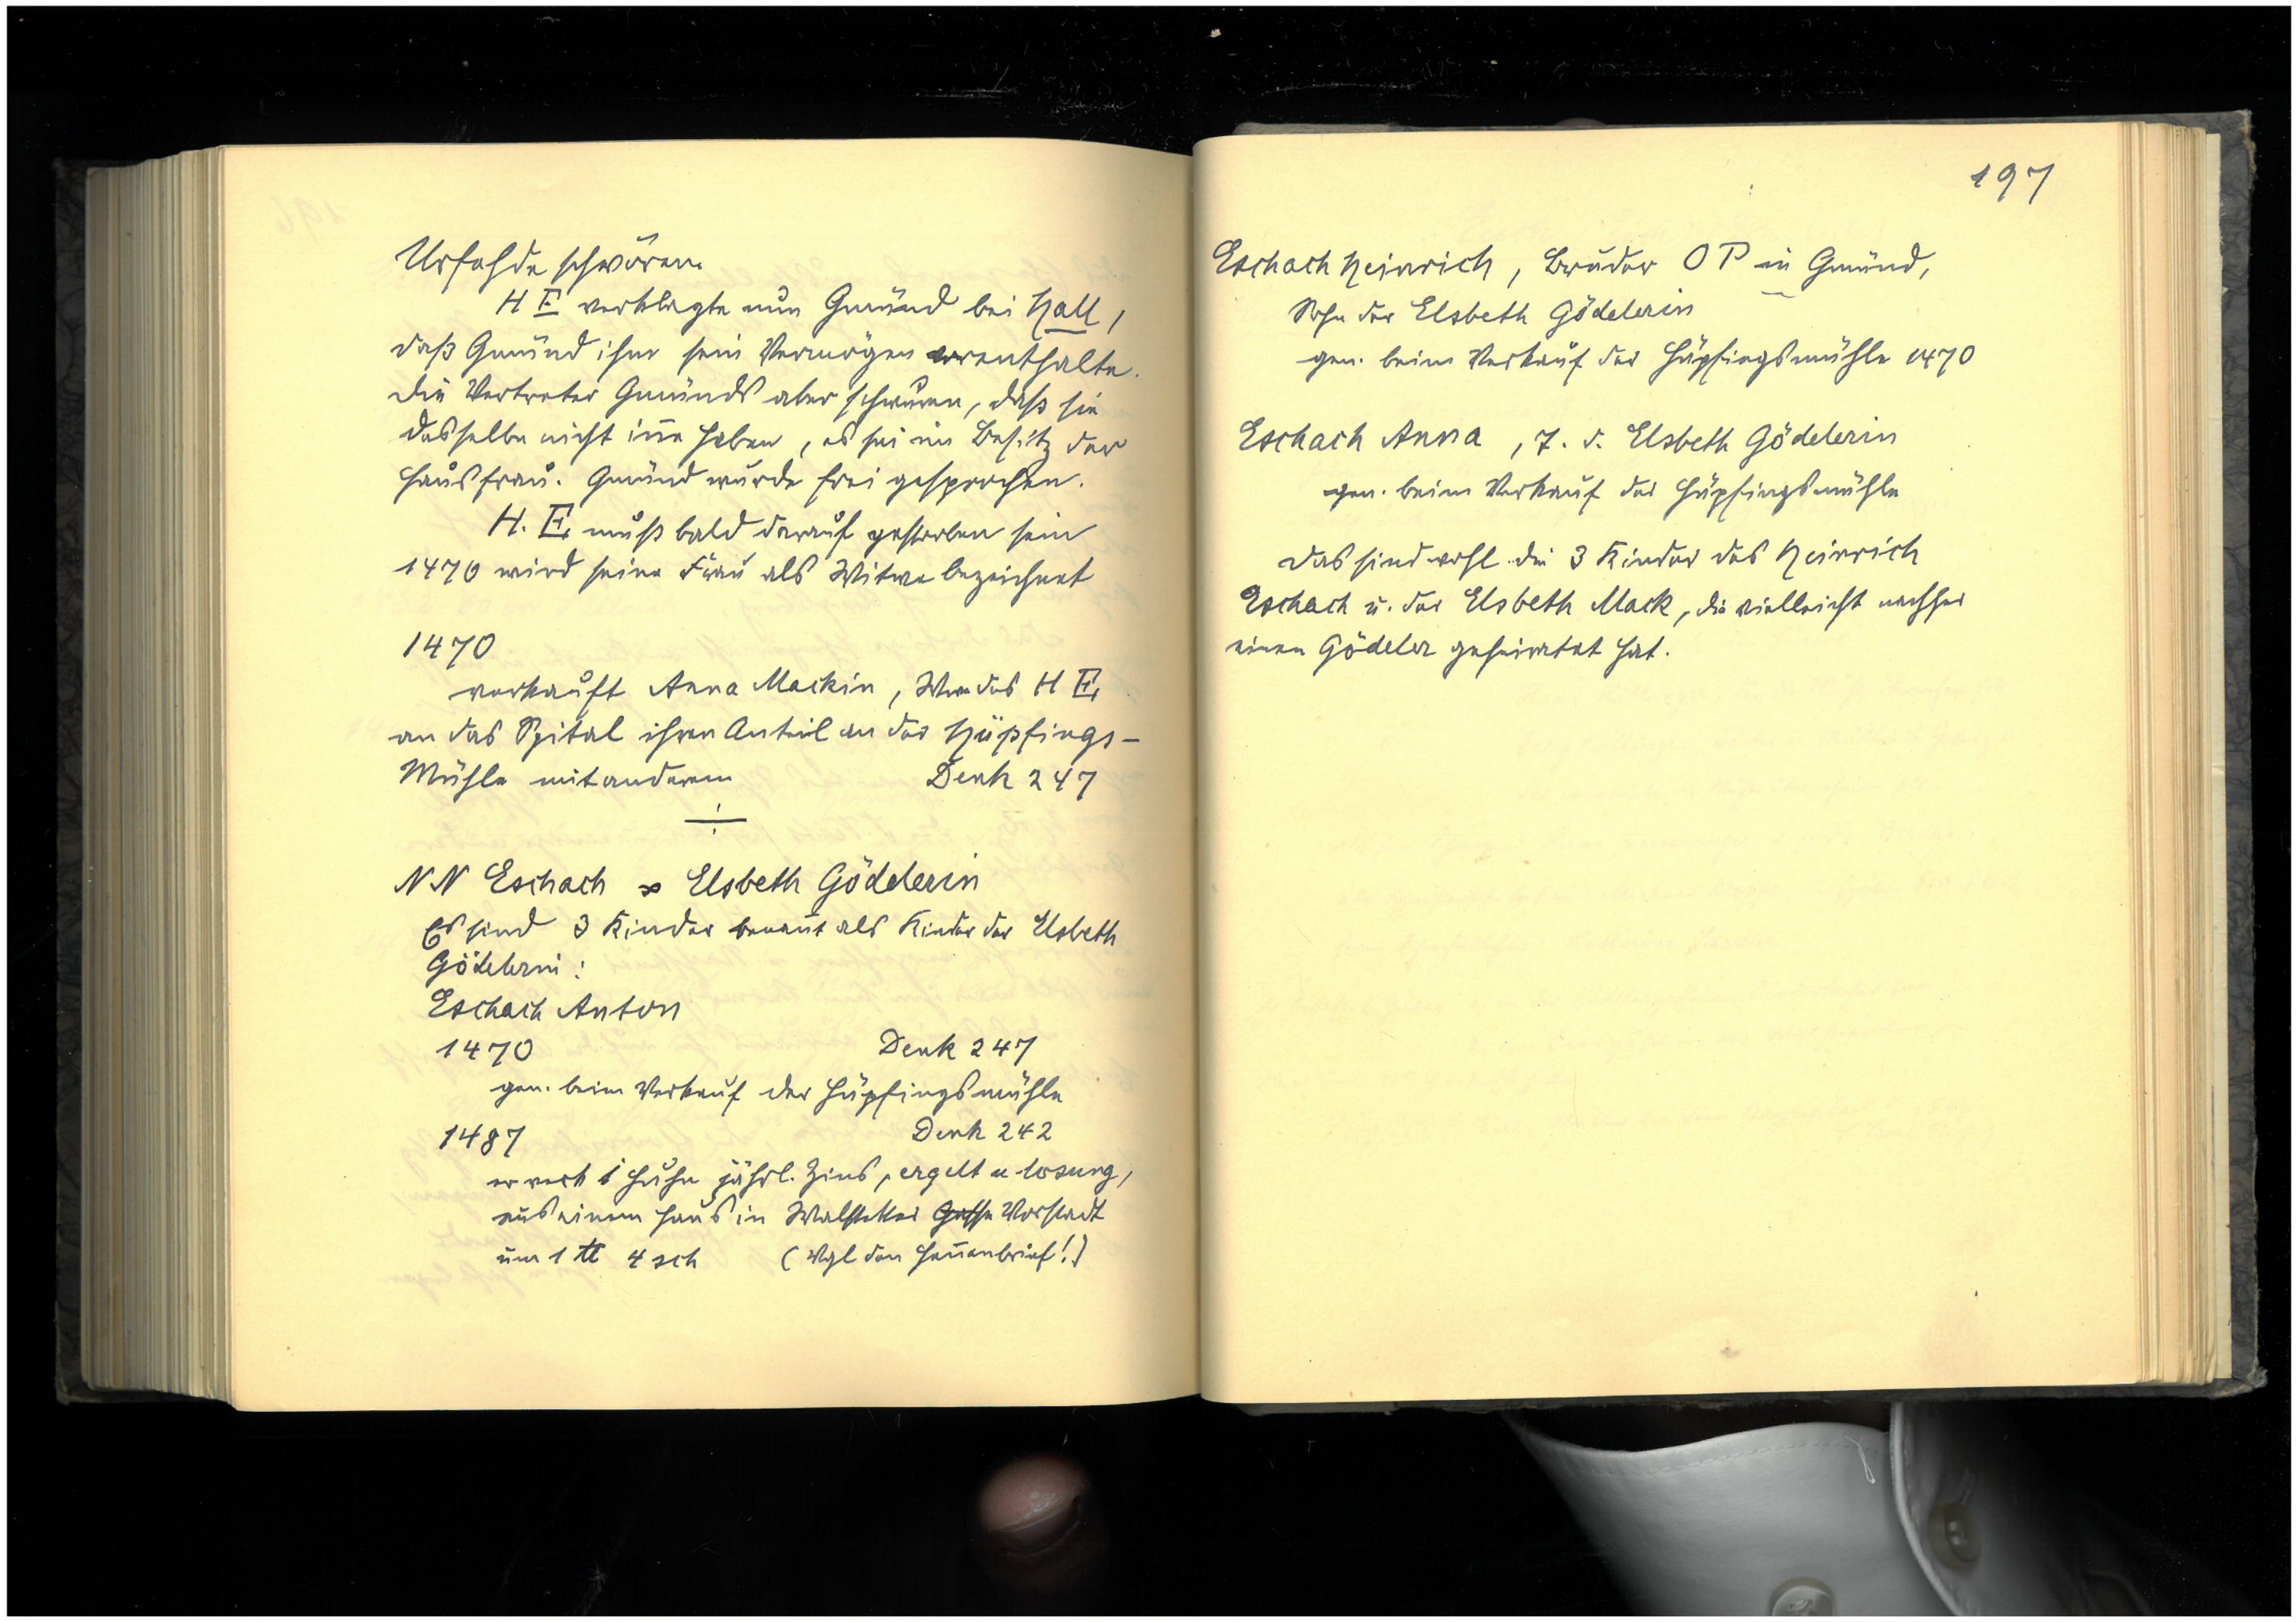 Urfehde schwören.
H E verklagte nun Gmünd bei Hall,
daß Gmünd ihm sein Vermögen vorenthalte.
Die Vertreter Gmünds aber schwuren, daß sie
dasselbe nicht in̄e haben, es sei im Besitz der
Hausfrau. Gmünd wurde frei gesprochen.
H. E. muß bald darauf gestorben sein
1470 wird seine Frau als Witwe bezeichnet
1470
verkauft Anna Mackin, Wwe des H E
an das Spital ihren Anteil an der Hüpfings-
Mühle mit anderem Denk 247
N N Eschach ∞ Elsbeth Gödelerin
Es sind 3 Kinder benan̄t als Kinder der Elsbeth
Gödelerin:
Eschach Anton
1470 Denk 247
gen. beim Verkauf der Hüpfingsmühle
1487 Denk 242
er verk 1 Huhn jährl. Zins, ergelt u losung,
aus einem Haus in Walstetter Gasse Vorstadt
um 1 ℔ 4 sch (Vgl den Hen̄enbrief!)
197
Eschach Heinrich, Bruder O P in Gmünd,
Sohn der Elsbeth Gödelerin
gen. beim Verkauf der Hüpfingsmühle 1470
Eschach Anna, T. d. Elsbeth Gödelerin
gen. beim Verkauf der Hüpfingsmühle
Das sind wohl die 3 Kinder des Heinrich
Eschach u. der Elsbeth Mack, die vielleicht nachher
einen Gödeler geheiratet hat.